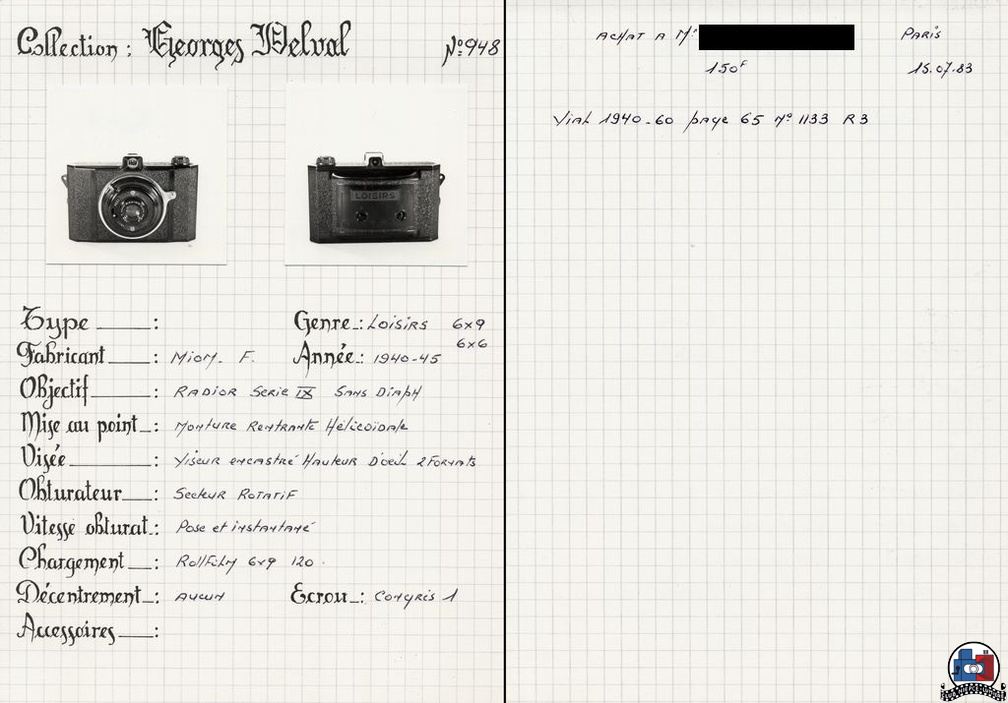 Collection : Georges Delval Nº948
LOISIRS
Type : Genre : LOISIRS 6x9
6x6
Fabricant : MIOM. F. Année : 1940-45
Objectif : RADIOR Serie IX SANS DIAPH
Mise au point : Monture Rentrante Hélicoïdale
Visée : Viseur encastré Hauteur D'oeil 2 Formats
Obturateur : Secteur Rotatif
Vitesse obturat. : Pose et instantané
Chargement : RollFilm 6x9 120
Décentrement : Aucun Ecrou : Congrès 1
Accessoires :
ACHAT A Mr PARIS
150F 15.07.83
Vial 1940-60 page 65 Nº 1133 R3